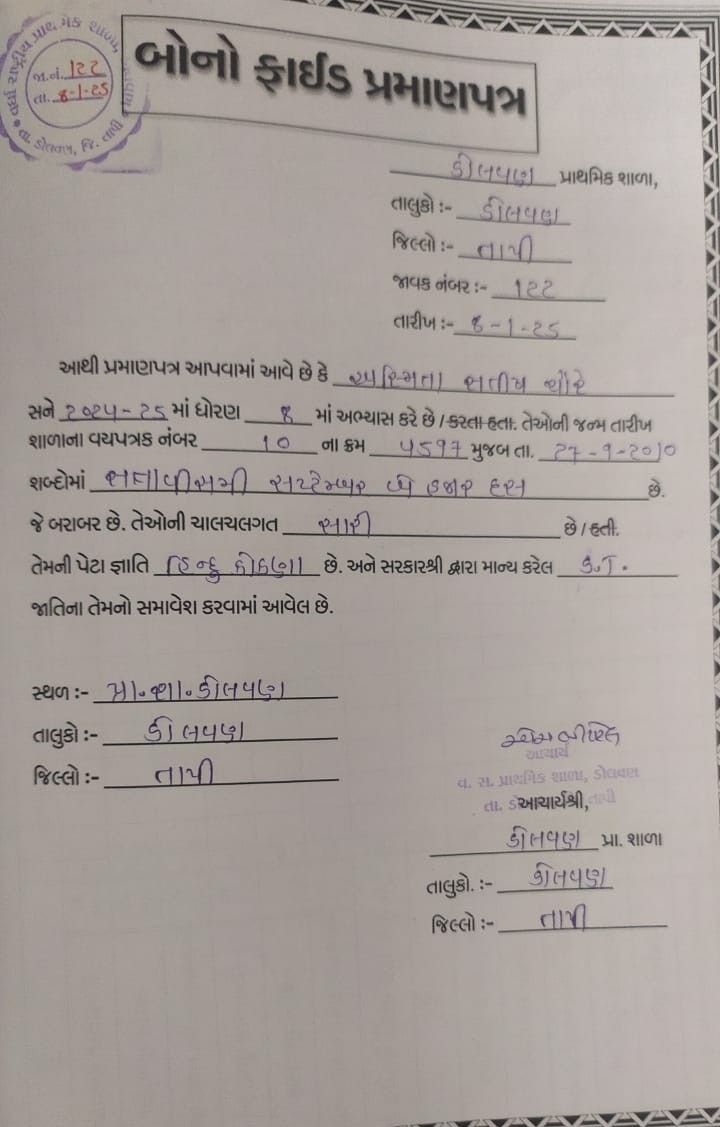 જા.નં. ૧૨૨
તા. ૪-૧-૨૫
તા. ડોલવણ, જિ. તાપી
બોનો ફાઈડ પ્રમાણપત્ર
ડોલવણ પ્રાથમિક શાળા,
તાલુકો :- ડોલવણ
જિલ્લો :- તાપી
જાવક નંબર :- ૧૨૨
તારીખ :- ૪-૧-૨૫
આથી પ્રમાણપત્ર આપવામાં આવે છે કે અસ્મિતા સતીષ ચૌરે
સને ૨૦૨૪-૨૫ માં ધોરણ ૪ માં અભ્યાસ કરે છે / કરતા હતા. તેઓની જન્મ તારીખ
શાળાના વયપત્રક નંબર ૧૦ ના ક્રમ ૫૬૧૭ મુજબ તા. ૨૭-૧-૨૦૧૦
શબ્દોમાં સત્તાવીસમી સપ્ટેમ્બર બે હજાર દસ છે.
જે બરાબર છે. તેઓની ચાલચલગત સારી છે / હતી.
તેમની પેટા જ્ઞાતિ હિન્દુ કોકણા છે. અને સરકારશ્રી દ્વારા માન્ય કરેલ S.T.
જાતિના તેમનો સમાવેશ કરવામાં આવેલ છે.
સ્થળ :- પ્રા.શા.ડોલવણ
તાલુકો :- ડોલવણ
જિલ્લો :- તાપી
આચાર્ય
વ. રા. પ્રાથમિક શાળા, ડોલવણ
તા. ડો તાપી
આચાર્યશ્રી,
ડોલવણ પ્રા. શાળા
તાલુકો. :- ડોલવણ
જિલ્લો :- તાપી